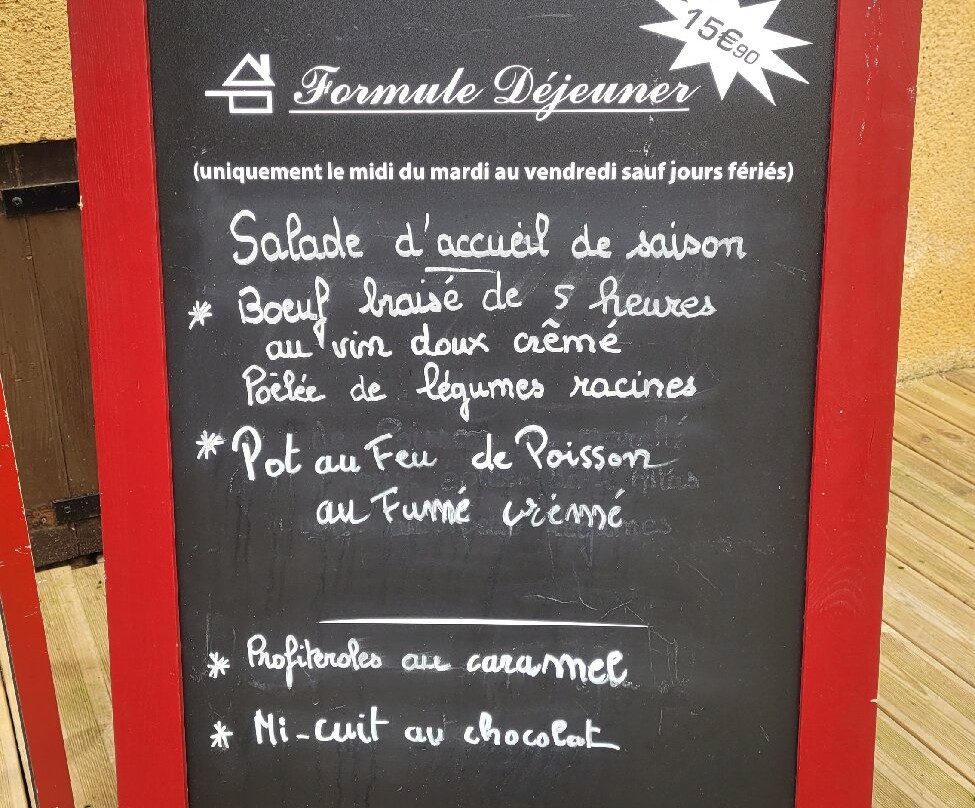 15€90
Formule Déjeuner
(uniquement le midi du mardi au vendredi sauf jours fériés)
Salade d'accueil de saison
* Boeuf braisé de 5 heures
au vin doux crêmé
Poêlée de légumes racines
* Pot au Feu de Poisson
au Fumé crémé
* Profiteroles au caramel
* Mi-cuit au chocolat